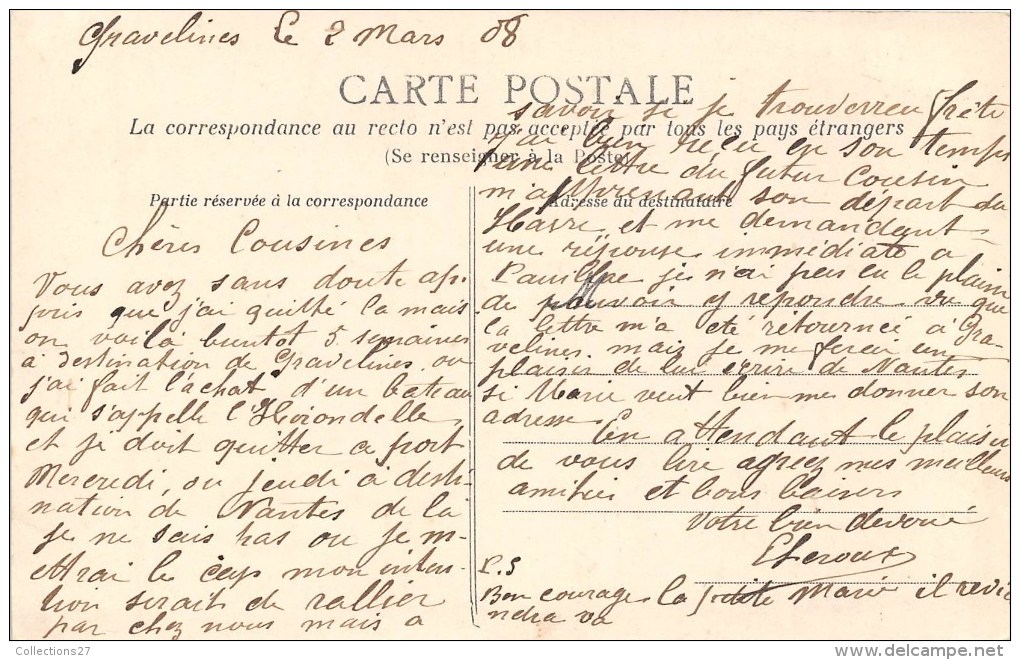 Gravelines Le 2 Mars 08
CARTE POSTALE
La correspondance au recto n'est pas acceptée par tous les pays étrangers
(Se renseigner à la Poste)
Partie réservée à la correspondance
Chères Cousines
Vous avez sans doute ap-
pris que j'ai quitté la mais
on voilà buntot 5 semaines
à destination de Gravelines ou
j'ai fait l'achat d'un bateau
qui s'appelle l'Hoiondelle
et je doit quitter ce port
Mercredi, ou jeudi à desti-
nation de Nantes de la
je ne sais pas ou je m-
ettrai le cap mon inten-
tion serait de rallier
par chez nous mais à
Adresse du destinataire
savoir si je trouverreu frète
j'ai bien reçu en son temps
une lettre du futur Cousin
m'apprenant son départ du
Havre, et me demandant
une réponse immédiate a
Pauillac je n'ai pas eu le plaisir
de pouvoir y repondre vu que
la lettre m'a été retournée à Gra-
velines. mais je me ferai un
plaisir de lui écrire de Nantes
si Marie veut bien me donner son
adresse
En attendant le plaisir
de vous lire agreez mes meilleurs
amitiés et bons baisers
Votre bien devoué
Eleroux
P.S
Bon courage la petite Marie il revie
ndra va
Collections27
www.delcampe.net